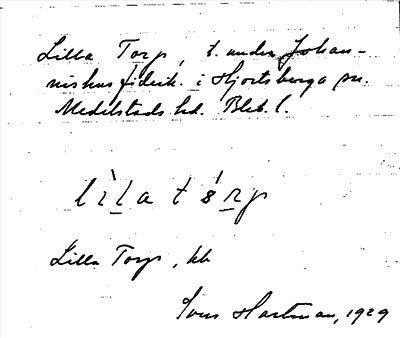 Lilla Torp, t. under Johan-
nishus fideik. i Hjortsberga sn.
Medelstads hd. Blek. l.
lìla tórp
Lilla Torp, kb
Sven Hartman, 1929